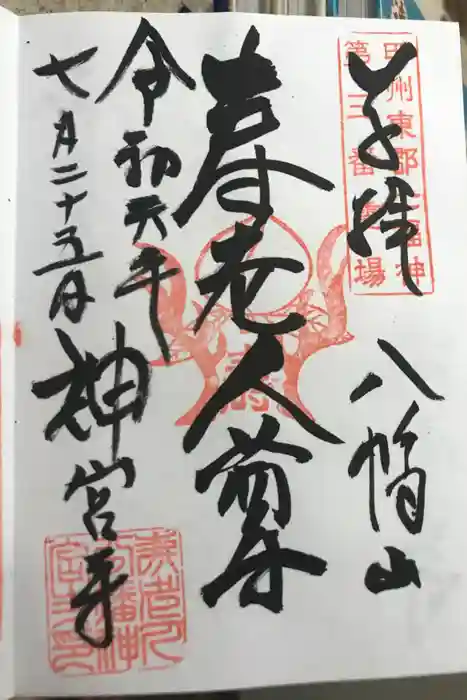 甲州東郡七福神
第三番霊場
奉拝
八幡山
寿老人尊
寿
令和元年
七月二十五日
神宮寺